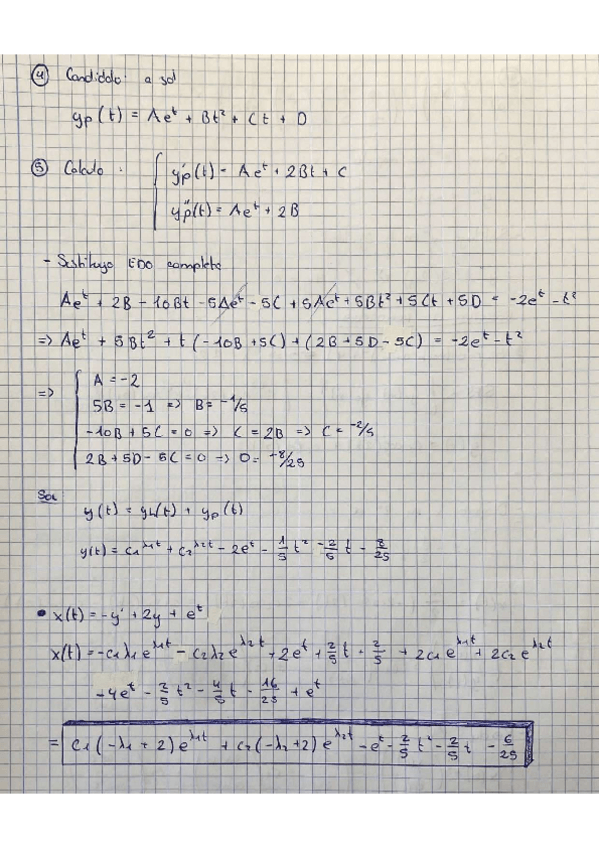 ④ Candidato: a sol
yp(t) = Ae^t + Bt² + Ct + D
⑤ Calculo: { y'p(t) = Ae^t + 2Bt + C
y''p(t) = Ae^t + 2B
- Sustituyo EDO completa
Ae^t + 2B - 10Bt - 5Ae^t - 5C + 5Ae^t + 5Bt² + 5Ct + 5D = -2e^t - t²
=> Ae^t + 5Bt² + t(-10B + 5C) + (2B + 5D - 5C) = -2e^t - t²
=> { A = -2
5B = -1 => B = -1/5
-10B + 5C = 0 => C = 2B => C = -2/5
2B + 5D - 5C = 0 -> D = -8/25
Sol
y(t) = yh(t) + yp(t)
y(t) = c₁^λ₁t + c₂^λ₂t - 2e^t - 1/5 t² - 2/5 t - 8/25
• x(t) = -y' + 2y + e^t
x(t) = -c₁λ₁e^λ₁t - c₂λ₂e^λ₂t + 2e^t + 2/5 t + 2/5 + 2c₁e^λ₁t + 2c₂e^λ₂t
-4e^t - 2/5 t² - 4/5 t - 16/25 + e^t
= c₁(-λ₁ + 2)e^λ₁t + c₂(-λ₂ + 2)e^λ₂t - e^t - 2/5 t² - 2/5 t - 6/25